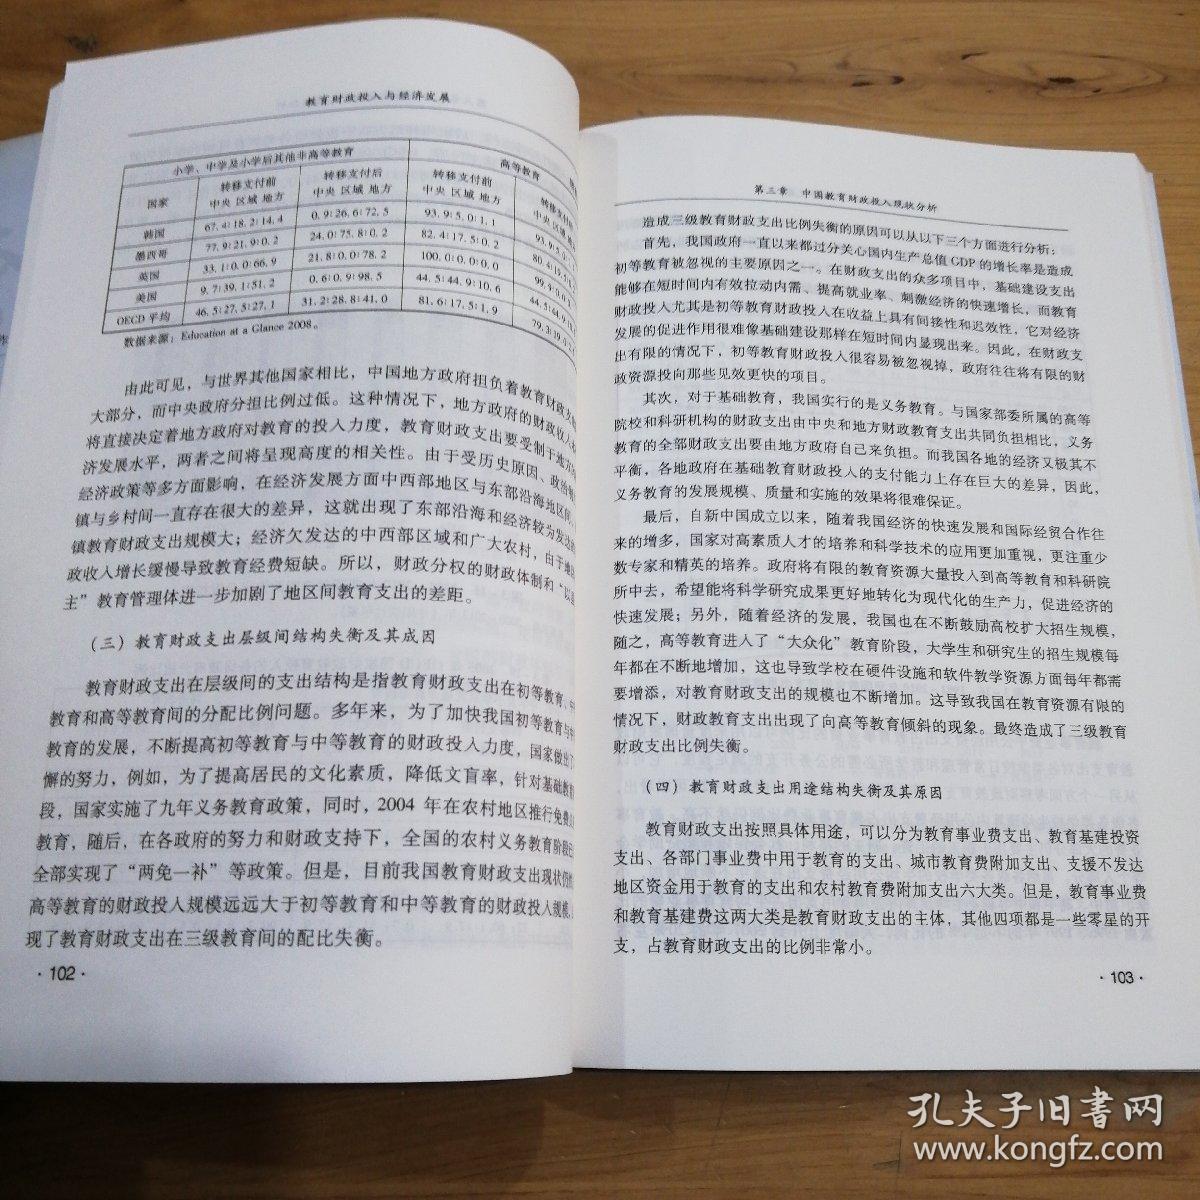 教育财政投入与经济发展
小学、中学及小学后其他非高等教育 高等教育
国家 转移支付前 转移支付后 转移支付前
中央 区域 地方 中央 区域 地方 中央 区域 地方
韩国 67.4:18.2:14.4 0.9:26.6:72.5 93.9:5.0:1.1
墨西哥 77.9:21.9:0.2 24.0:75.8:0.2 82.4:17.5:0.2
英国 33.1:0.0:66.9 21.8:0.0:78.2 100.0:0.0:0.0
美国 9.7:39.1:51.2 0.6:0.9:98.5 44.5:44.9:10.6
OECD 平均 46.5:27.5:27.1 31.2:28.8:41.0 81.6:17.5:1.9
数据来源：Education at a Glance 2008。
由此可见，与世界其他国家相比，中国地方政府担负着教育财政支
大部分，而中央政府分担比例过低。这种情况下，地方政府的财政收入
将直接决定着地方政府对教育的投入力度，教育财政支出要受制于地方
济发展水平，两者之间将呈现高度的相关性。由于受历史原因、政治
经济政策等多方面影响，在经济发展方面中西部地区与东部沿海地区间、
镇与乡村间一直存在很大的差异，这就出现了东部沿海和经济较为发达的
镇教育财政支出规模大；经济欠发达的中西部区域和广大农村，由于地
政收入增长缓慢导致教育经费短缺。所以，财政分权的财政体制和“以
主”教育管理体进一步加剧了地区间教育支出的差距。
（三）教育财政支出层级间结构失衡及其成因
教育财政支出在层级间的支出结构是指教育财政支出在初等教育、中
教育和高等教育间的分配比例问题。多年来，为了加快我国初等教育与中
教育的发展，不断提高初等教育与中等教育的财政投入力度，国家做出了
懈的努力，例如，为了提高居民的文化素质，降低文盲率，针对基础教育
段，国家实施了九年义务教育政策，同时，2004 年在农村地区推行免费
教育，随后，在各政府的努力和财政支持下，全国的农村义务教育阶段
全部实现了“两免一补”等政策。但是，目前我国教育财政支出现状仍
高等教育的财政投入规模远远大于初等教育和中等教育的财政投入规模，
现了教育财政支出在三级教育间的配比失衡。
·102·
第三章 中国教育财政投入现状分析
造成三级教育财政支出比例失衡的原因可以从以下三个方面进行分析：
首先，我国政府一直以来都过分关心国内生产总值 GDP 的增长率是造成
初等教育被忽视的主要原因之一。在财政支出的众多项目中，基础建设支出
能够在短时间内有效拉动内需、提高就业率、刺激经济的快速增长，而教育
财政投入尤其是初等教育财政投入在收益上具有间接性和迟效性，它对经济
发展的促进作用很难像基础建设那样在短时间内显现出来。因此，在财政支
出有限的情况下，初等教育财政投入很容易被忽视掉，政府往往将有限的财
政资源投向那些见效更快的项目。
其次，对于基础教育，我国实行的是义务教育。与国家部委所属的高等
院校和科研机构的财政支出由中央和地方财政教育支出共同负担相比，义务
教育的全部财政支出要由地方政府自己来负担。而我国各地的经济又极其不
平衡，各地政府在基础教育财政投入的支付能力上存在巨大的差异，因此，
义务教育的发展规模、质量和实施的效果将很难保证。
最后，自新中国成立以来，随着我国经济的快速发展和国际经贸合作往
来的增多，国家对高素质人才的培养和科学技术的应用更加重视，更注重少
数专家和精英的培养。政府将有限的教育资源大量投入到高等教育和科研院
所中去，希望能将科学研究成果更好地转化为现代化的生产力，促进经济的
快速发展；另外，随着经济的发展，我国也在不断鼓励高校扩大招生规模，
随之，高等教育进入了“大众化”教育阶段，大学生和研究生的招生规模每
年都在不断地增加，这也导致学校在硬件设施和软件教学资源方面每年都需
要增添，对教育财政支出的规模也不断增加。这导致我国在教育资源有限的
情况下，财政教育支出出现了向高等教育倾斜的现象。最终造成了三级教育
财政支出比例失衡。
（四）教育财政支出用途结构失衡及其原因
教育财政支出按照具体用途，可以分为教育事业费支出、教育基建投资
支出、各部门事业费中用于教育的支出、城市教育费附加支出、支援不发达
地区资金用于教育的支出和农村教育费附加支出六大类。但是，教育事业费
和教育基建费这两大类是教育财政支出的主体，其他四项都是一些零星的开
支，占教育财政支出的比例非常小。
·103·
孔夫子旧书网
www.kongfz.com